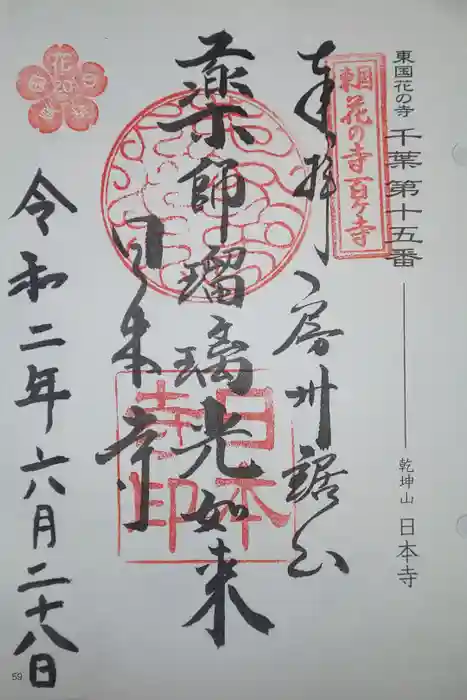 東国花の寺 千葉第十五番 乾坤山 日本寺
東国花の寺百ヶ寺
奉拝 房州鋸山
薬師瑠璃光如来
日本寺
日本寺印
令和二年六月二十八日
花
20
59